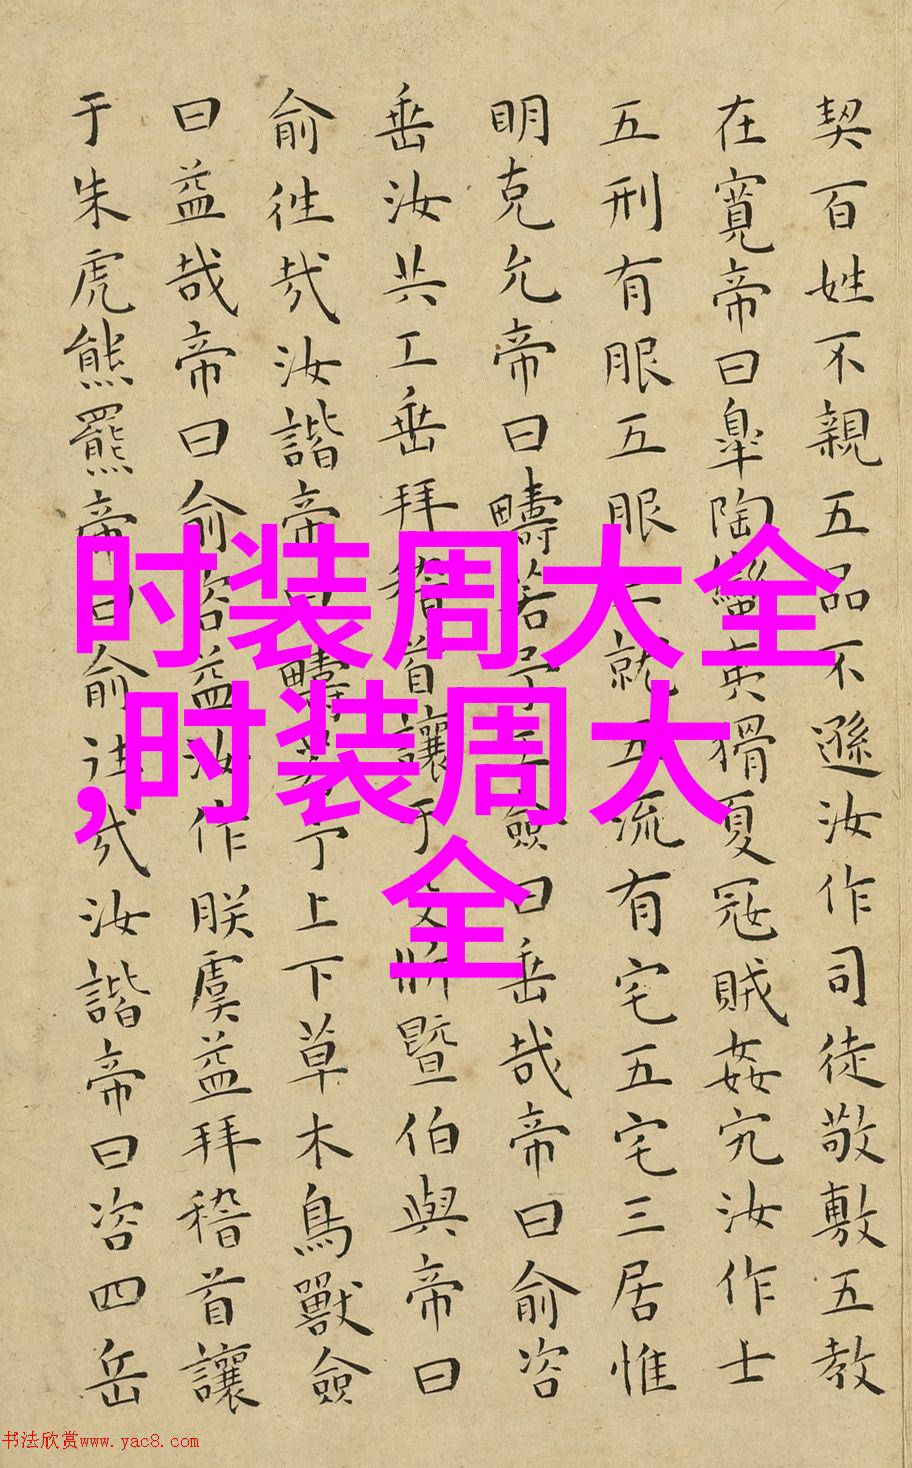 契百姓不親五品不遜汝作司徒敬敷五教
在寬帝曰臯陶蠻夷猾夏寇賊姦宄汝作士
五刑有服五服就五流有宅五宅三居惟
明克允帝曰疇若予工僉曰垂哉帝曰俞咨
垂汝共工垂拜稽首讓于斨暨伯與帝曰
俞往哉汝諧帝曰疇若予上下草木鳥獸僉
曰益哉帝曰俞咨益汝作朕虞益拜稽首讓
于朱虎熊羆帝曰俞往哉汝諧帝曰咨四岳
时装周大全
,时装周大
全
书法欣赏www.yac8.com